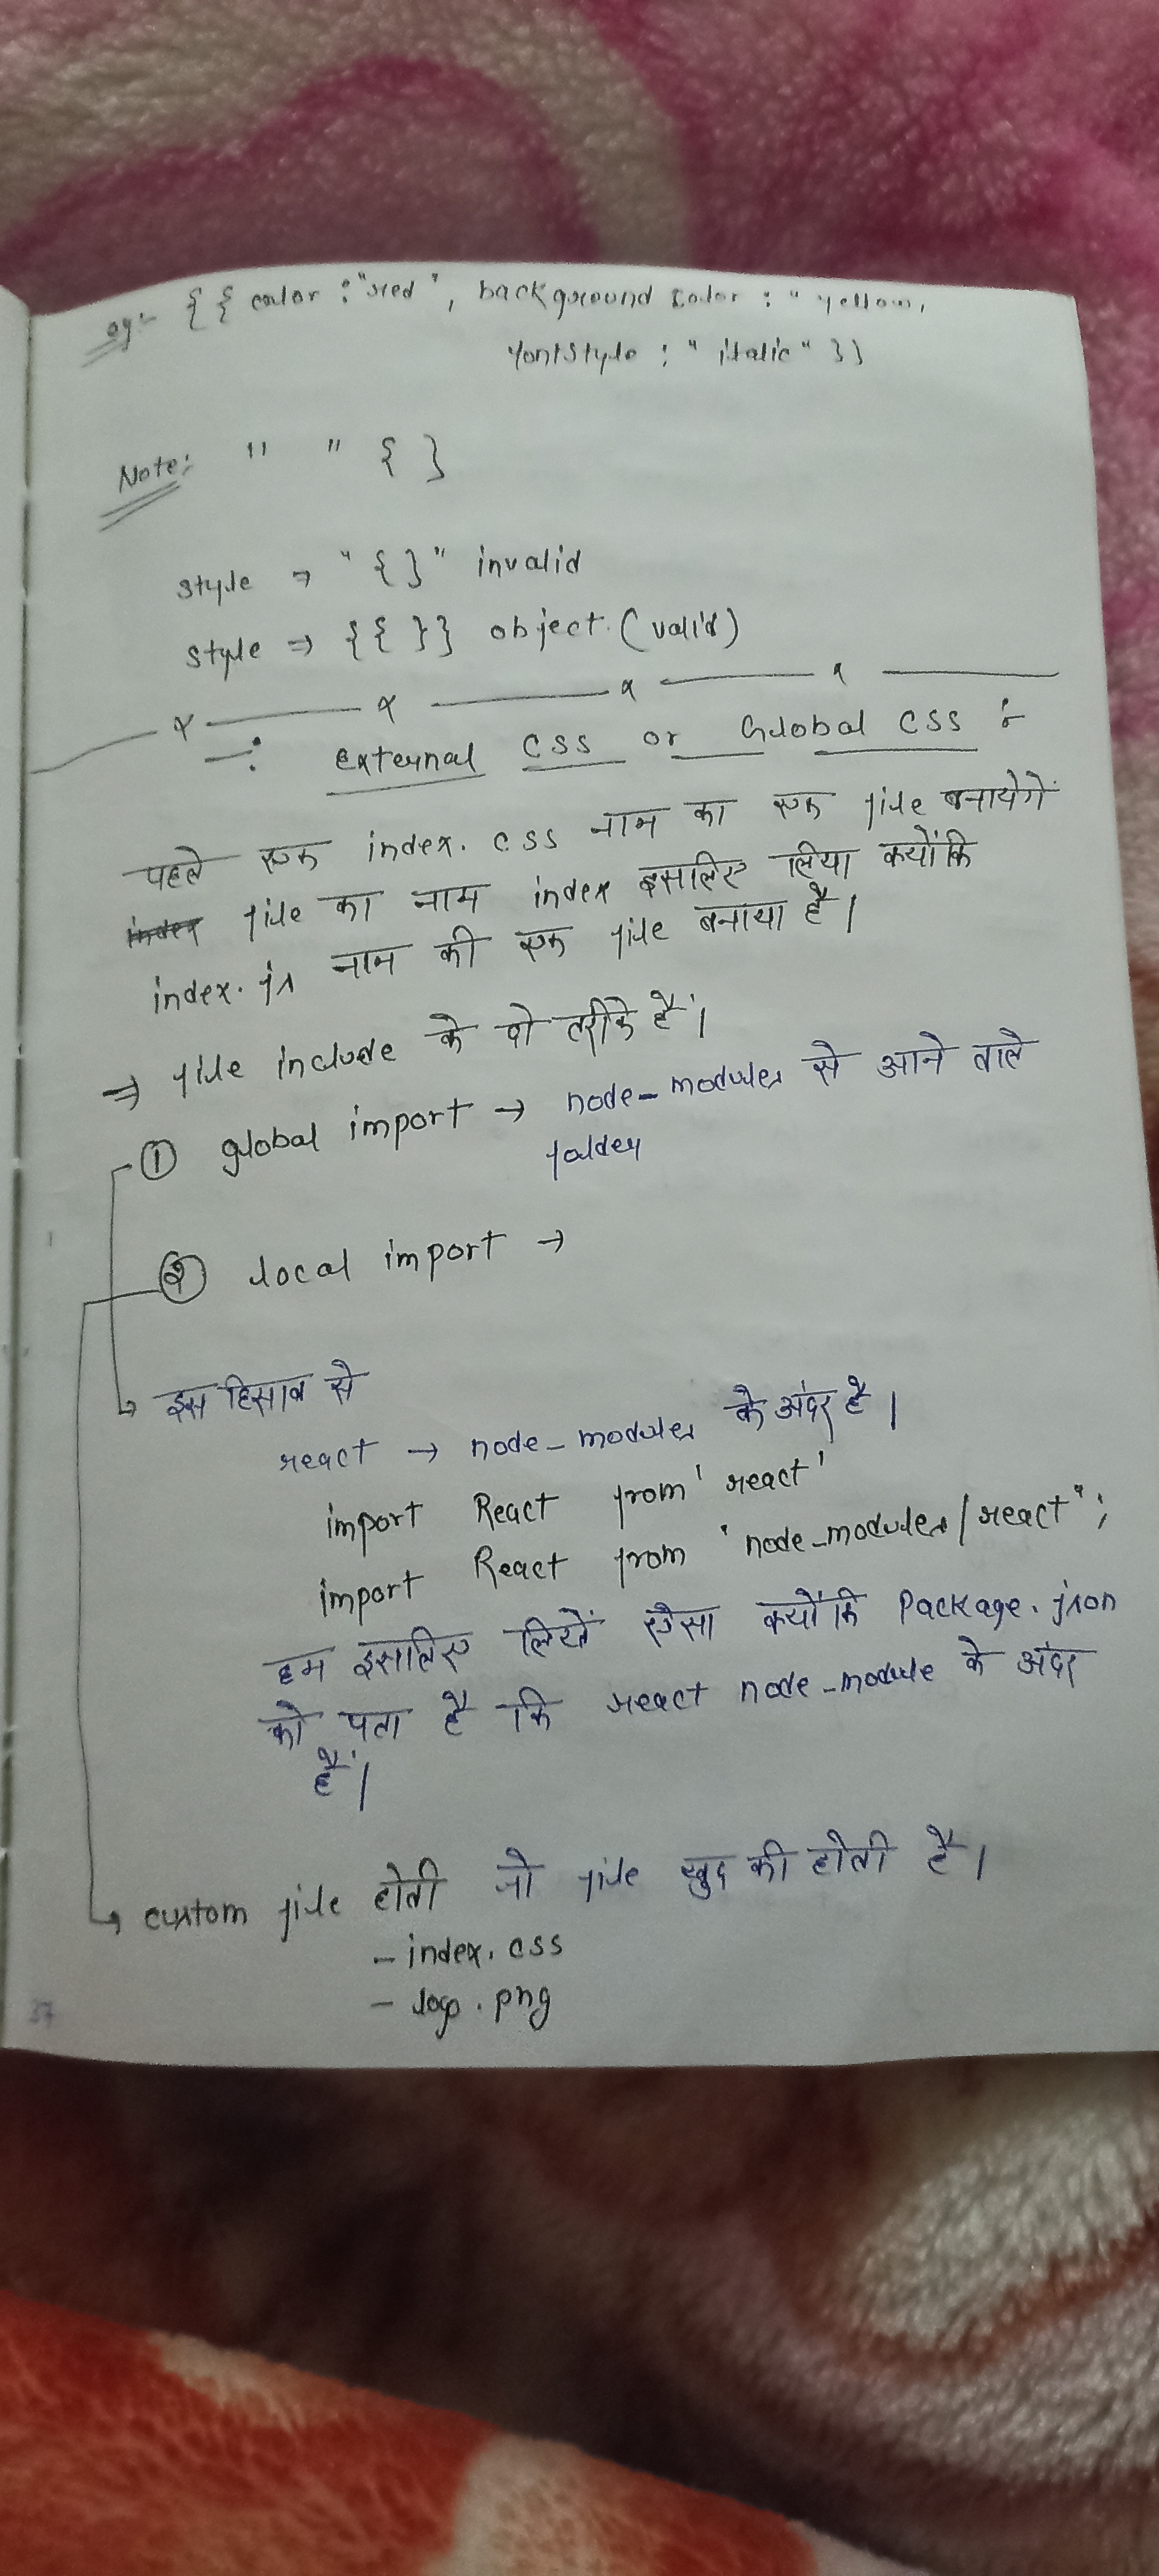 eg:- {{ color : "red", background color : "yellow,
fontstyle : "italic" }}
Note: " " { }
style ⇒ "{ }" invalid
style ⇒ {{ }} object. (valid)
-: External CSS or Global CSS :-
पहले एक index. css नाम का एक file बनायेगें
index file का नाम index इसलिए लिया क्योंकि
index. js नाम की एक file बनाया है।
⇒ file include के दो तरीके हैं।
① global import → node-modules से आने वाले
folder
② local import →
इस हिसाब से
react → node-modules के अंदर है।
import React from 'react'
import React from 'node-modules/react";
हम इसलिए लिखें ऐसा क्योंकि Package. json
को पता है कि react node-module के अंदर
हैं।
custom file होती जो file खुद की होती है।
- index. css
- logo . png
37